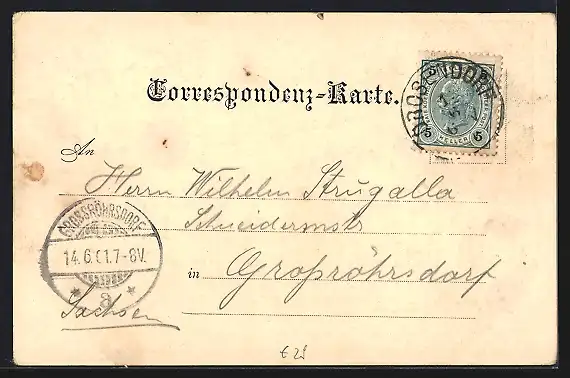 Correspondenz-Karte.
DROSENDORF
5 HELLER 5
An
Herrn Wilhelm Strugalla
Schneidermstr
GROSSRÖHRSDORF
14.6.01.7-8V.
* a *
in Großröhrsdorf
Sachsen